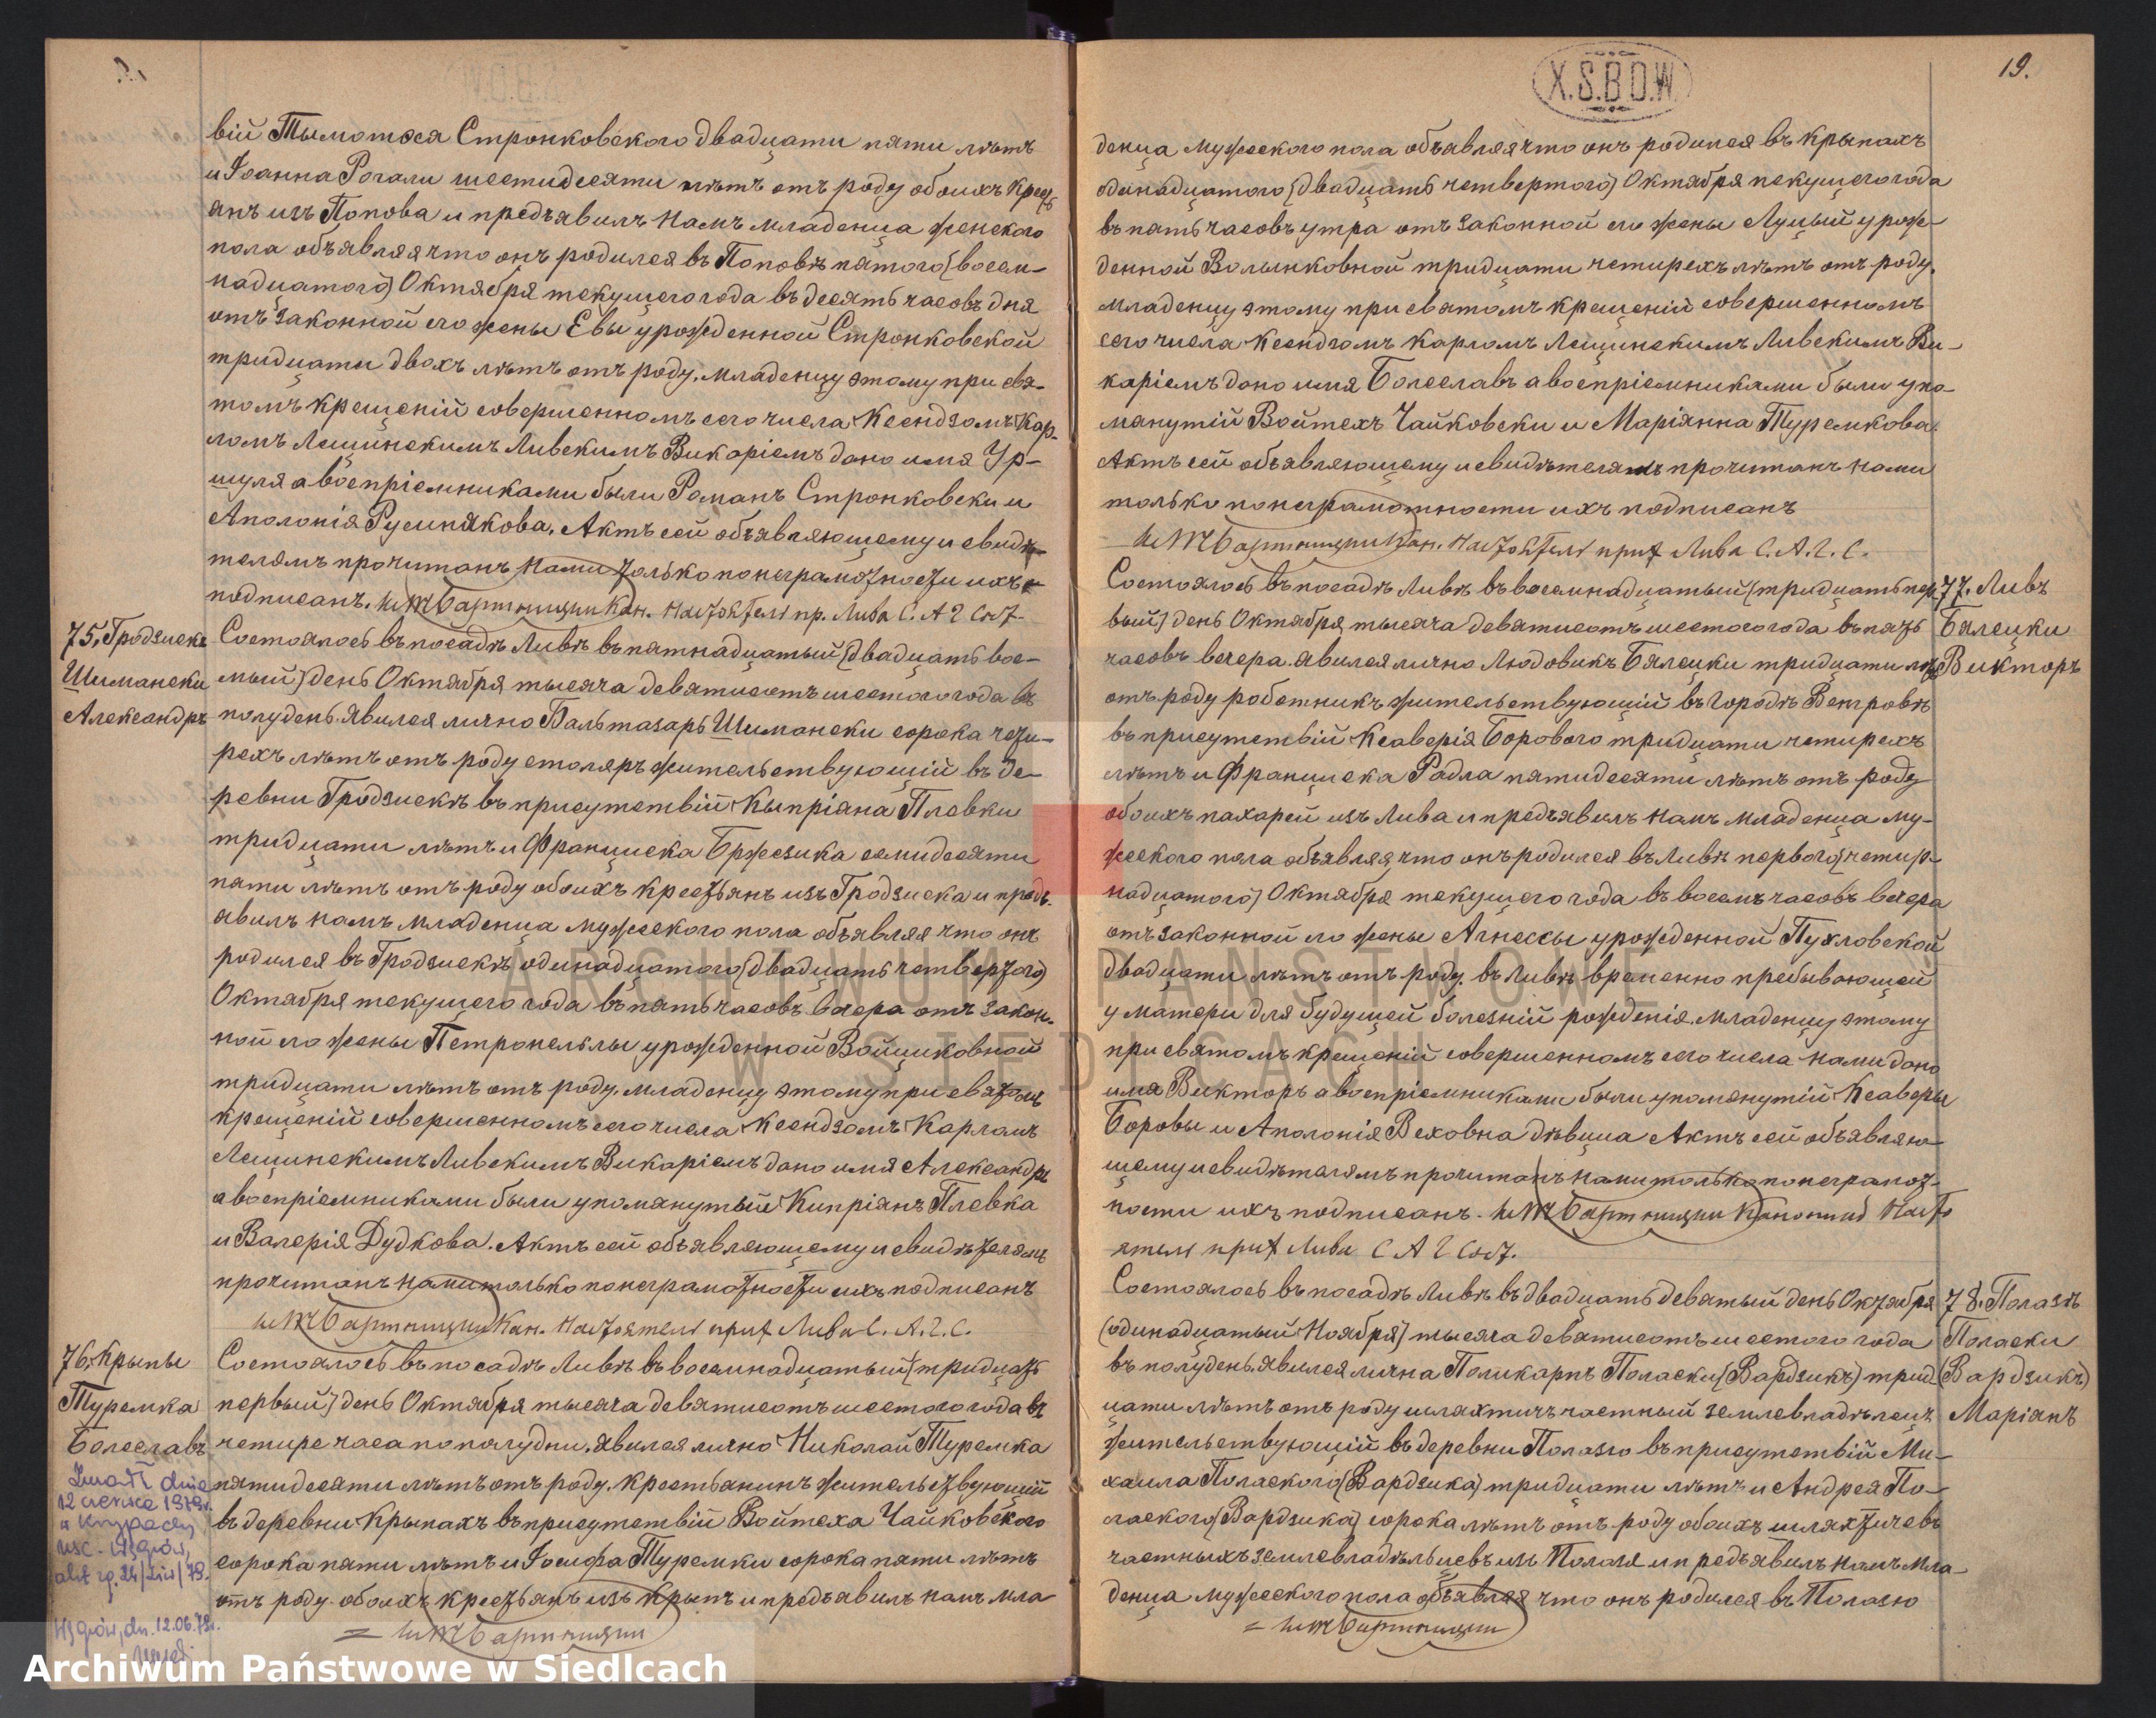 19.
X.S.B.D.W.
вій Тымотея Стронковскаго двадцати пяти лѣтъ
и Іоанна Рогали шестидесяти лѣтъ отъ роду обоихъ Крест
янъ изъ Попова и предъявилъ намъ младенца женскаго
пола объявляя что онъ родился въ Поповѣ пятого (восем-
надцатого) Октября текущего года въ десять часовъ дня
отъ законной его жены Евы урожденной Стронковской
тридцати двохъ лѣтъ отъ роду. младенцу этому при свя-
томъ крещеній совершенномъ сего числа Ксендзомъ Кар-
ломъ Лещинскимъ Ливскимъ Викаріемъ дано имя Ур-
шуля а воспріемниками были Романъ Стронковски и
Аполонія Русинякова. Актъ сей объявляющему и свидѣ-
телямъ прочитанъ Нами только по неграмотности ихъ
подписанъ. Бартницки Кан. Настоятель пр. Лива С. А. Г. Сост.
75. Гродзискъ
Шимански
Александръ
Состоялось въ посадѣ Ливѣ въ пятнадцатый (двадцать вос-
мый) день Октября тысяча девятисотъ шестого года въ
полудень. Явился лично Бальтазаръ Шимански сорока чети-
рехъ лѣтъ отъ роду столяръ жительствующій въ де-
ревни Гродзискѣ въ присутствій Кыпріана Плевки
тридцати лѣтъ и Франциска Бржезика семидесяти
пяти лѣтъ отъ роду обоихъ крестьянъ изъ Гродзиска и предъ-
явилъ намъ младенца мужескаго пола объявляя что онъ
родился въ Гродзискѣ одинадцатого (двадцать четвертого)
Октября текущего года въ пять часовъ вечера отъ закон-
ной его жены Петронельлы урожденной Войциковной
тридцати лѣтъ отъ роду. младенцу этому при святомъ
крещеній совершенномъ сего числа Ксендзомъ Карломъ
Лещинскимъ Ливскимъ Викаріемъ дано имя Александръ
а воспріемниками были упомянутый Кипріянъ Плевка
и Валерія Дудкова. Актъ сей объявляющему и свидѣтелямъ
прочитанъ нами только по неграмотности ихъ подписанъ
Бартницки Кан. Настоятель прих Лива С. А. Г. С.
76. Крыпы
Туремка
Болеславъ
Zmarł dnia
12 czerwca 1979r.
w Krypach
usc. Węgrów,
akt zg. 24/Liw/79.
Węgrów, dn. 12.06.79r.
Состоялось въ посадѣ Ливѣ въ восемнадцатый (тридцать
первый) день Октября тысяча девятисотъ шестого года въ
четире часа пополудни. явился лично Николай Туремка
пятидесяти лѣтъ отъ роду. крестьянинъ жительствующій
въ деревни Крыпахъ въ присутствій Войтеха Чайковского
сорока пяти лѣтъ и Іосифа Туремки сорока пяти лѣтъ
отъ роду обоихъ крестьянъ изъ Крыпъ и предъявилъ намъ мла
= Бартницки
денца мужеского пола объявляя что онъ родился въ Крыпахъ
одинадцатого (двадцать четвертого) Октября текущего года
въ пять часовъ утра отъ законной его жены Луцый урож-
денной Волынковной тридцати четирехъ лѣтъ отъ роду.
младенцу этому при святомъ крещеній совершенномъ
сего числа Ксендзомъ Карломъ Лещинскимъ Ливскимъ Ви-
каріемъ дано имя Болеславъ а воспріемниками были упо-
манутій Войтехъ Чайковски и Маріянна Туремкова.
Актъ сей объявляющему и свидѣтелямъ прочитанъ нами
только по неграмотности ихъ подписанъ
Бартницки Кан. Настоятель прих Лива С. А. Г. С.
77. Ливъ
Бялецки
Викторъ
Состоялось въ посадѣ Ливѣ въ восемнадцатый (тридцать пер
вый) день Октября тысяча девятисотъ шестого года въ пять
часовъ вечера. явился лично Людовикъ Бялецки тридцати лѣтъ
отъ роду работникъ жительствующій въ городѣ Венгровѣ
въ присутствій Ксаверія Борового тридцати четирехъ
лѣтъ и Франциска Радла пятидесяти лѣтъ отъ роду
обоихъ пахарей изъ Лива и предъявилъ намъ младенца му-
жеского пола объявляя что онъ родился въ Ливѣ первого (четир-
надцатого) Октября текущего года въ восемъ часовъ вечера
отъ законной его жены Агнессы урожденной Пухловской
двадцати лѣтъ отъ роду. въ Ливѣ временно пребывающей
у матери для будущей болезній рожденія. младенцу этому
при святомъ крещеній совершенномъ сего числа нами дано
имя Викторъ а воспріемниками были упомянутій Ксаверы
Боровы и Аполонія Веховна дѣвица Актъ сей объявляю-
щему и свидѣтелямъ прочитанъ нами только по неграмот-
ности ихъ подписанъ. Бартницки Каноник Насто
ятель прих Лива С А Г Сост.
78. Полазѣ
Поласки
(Вардзикъ)
Маріянъ
Состоялось въ посадѣ Ливѣ въ двадцать девятый день Октября
(одинадцатый Ноября) тысяча девятисотъ шестого года
въ полудень. явился лична Поликарпъ Поласки (Вардзикъ) трид
цати лѣтъ отъ роду шляхтичъ частный землевладѣлецъ
жительствующій въ деревни Полазю въ присутствій Ми-
хаила Полаского (Вардзика) тридцати лѣтъ и Андрея По-
лаского (Вардзика) сорока лѣтъ отъ роду обоихъ шляхтичевъ
частныхъ землевладѣльцевъ изъ Полазя и предъявилъ намъ мла-
денца мужеского пола объявляя что онъ родился въ Полазю
= Бартницки
ARCHIWUM PAŃSTWOWE
W SIEDLCACH
Archiwum Państwowe w Siedlcach